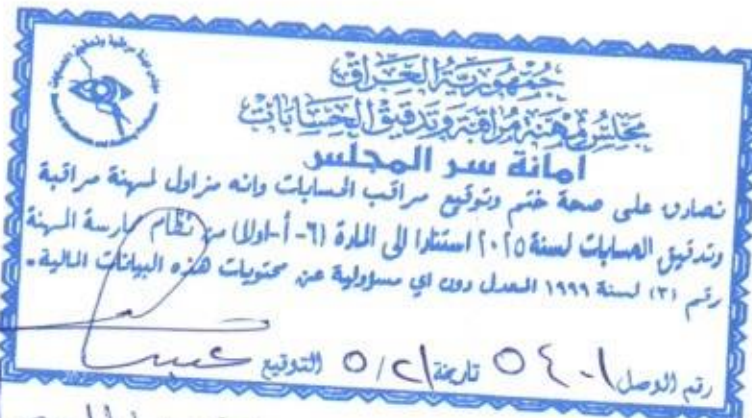 جمهورية العراق
مجلس مهنة مراقبة وتدقيق الحسابات
امانة سر المجلس
نصادق على صحة ختم وتوقيع مراقب الحسابات وانه مزاول لمهنة مراقبة
وتدقيق الحسابات لسنة ٢٠٢٥ استنادا الى المادة (٦-أ-اولا) من نظام ممارسة المهنة
رقم (٣) لسنة ١٩٩٩ المعدل دون اي مسؤولية عن محتويات هذه البيانات المالية.
رقم الوصل تاريخه ٥/٢١ التوقيع